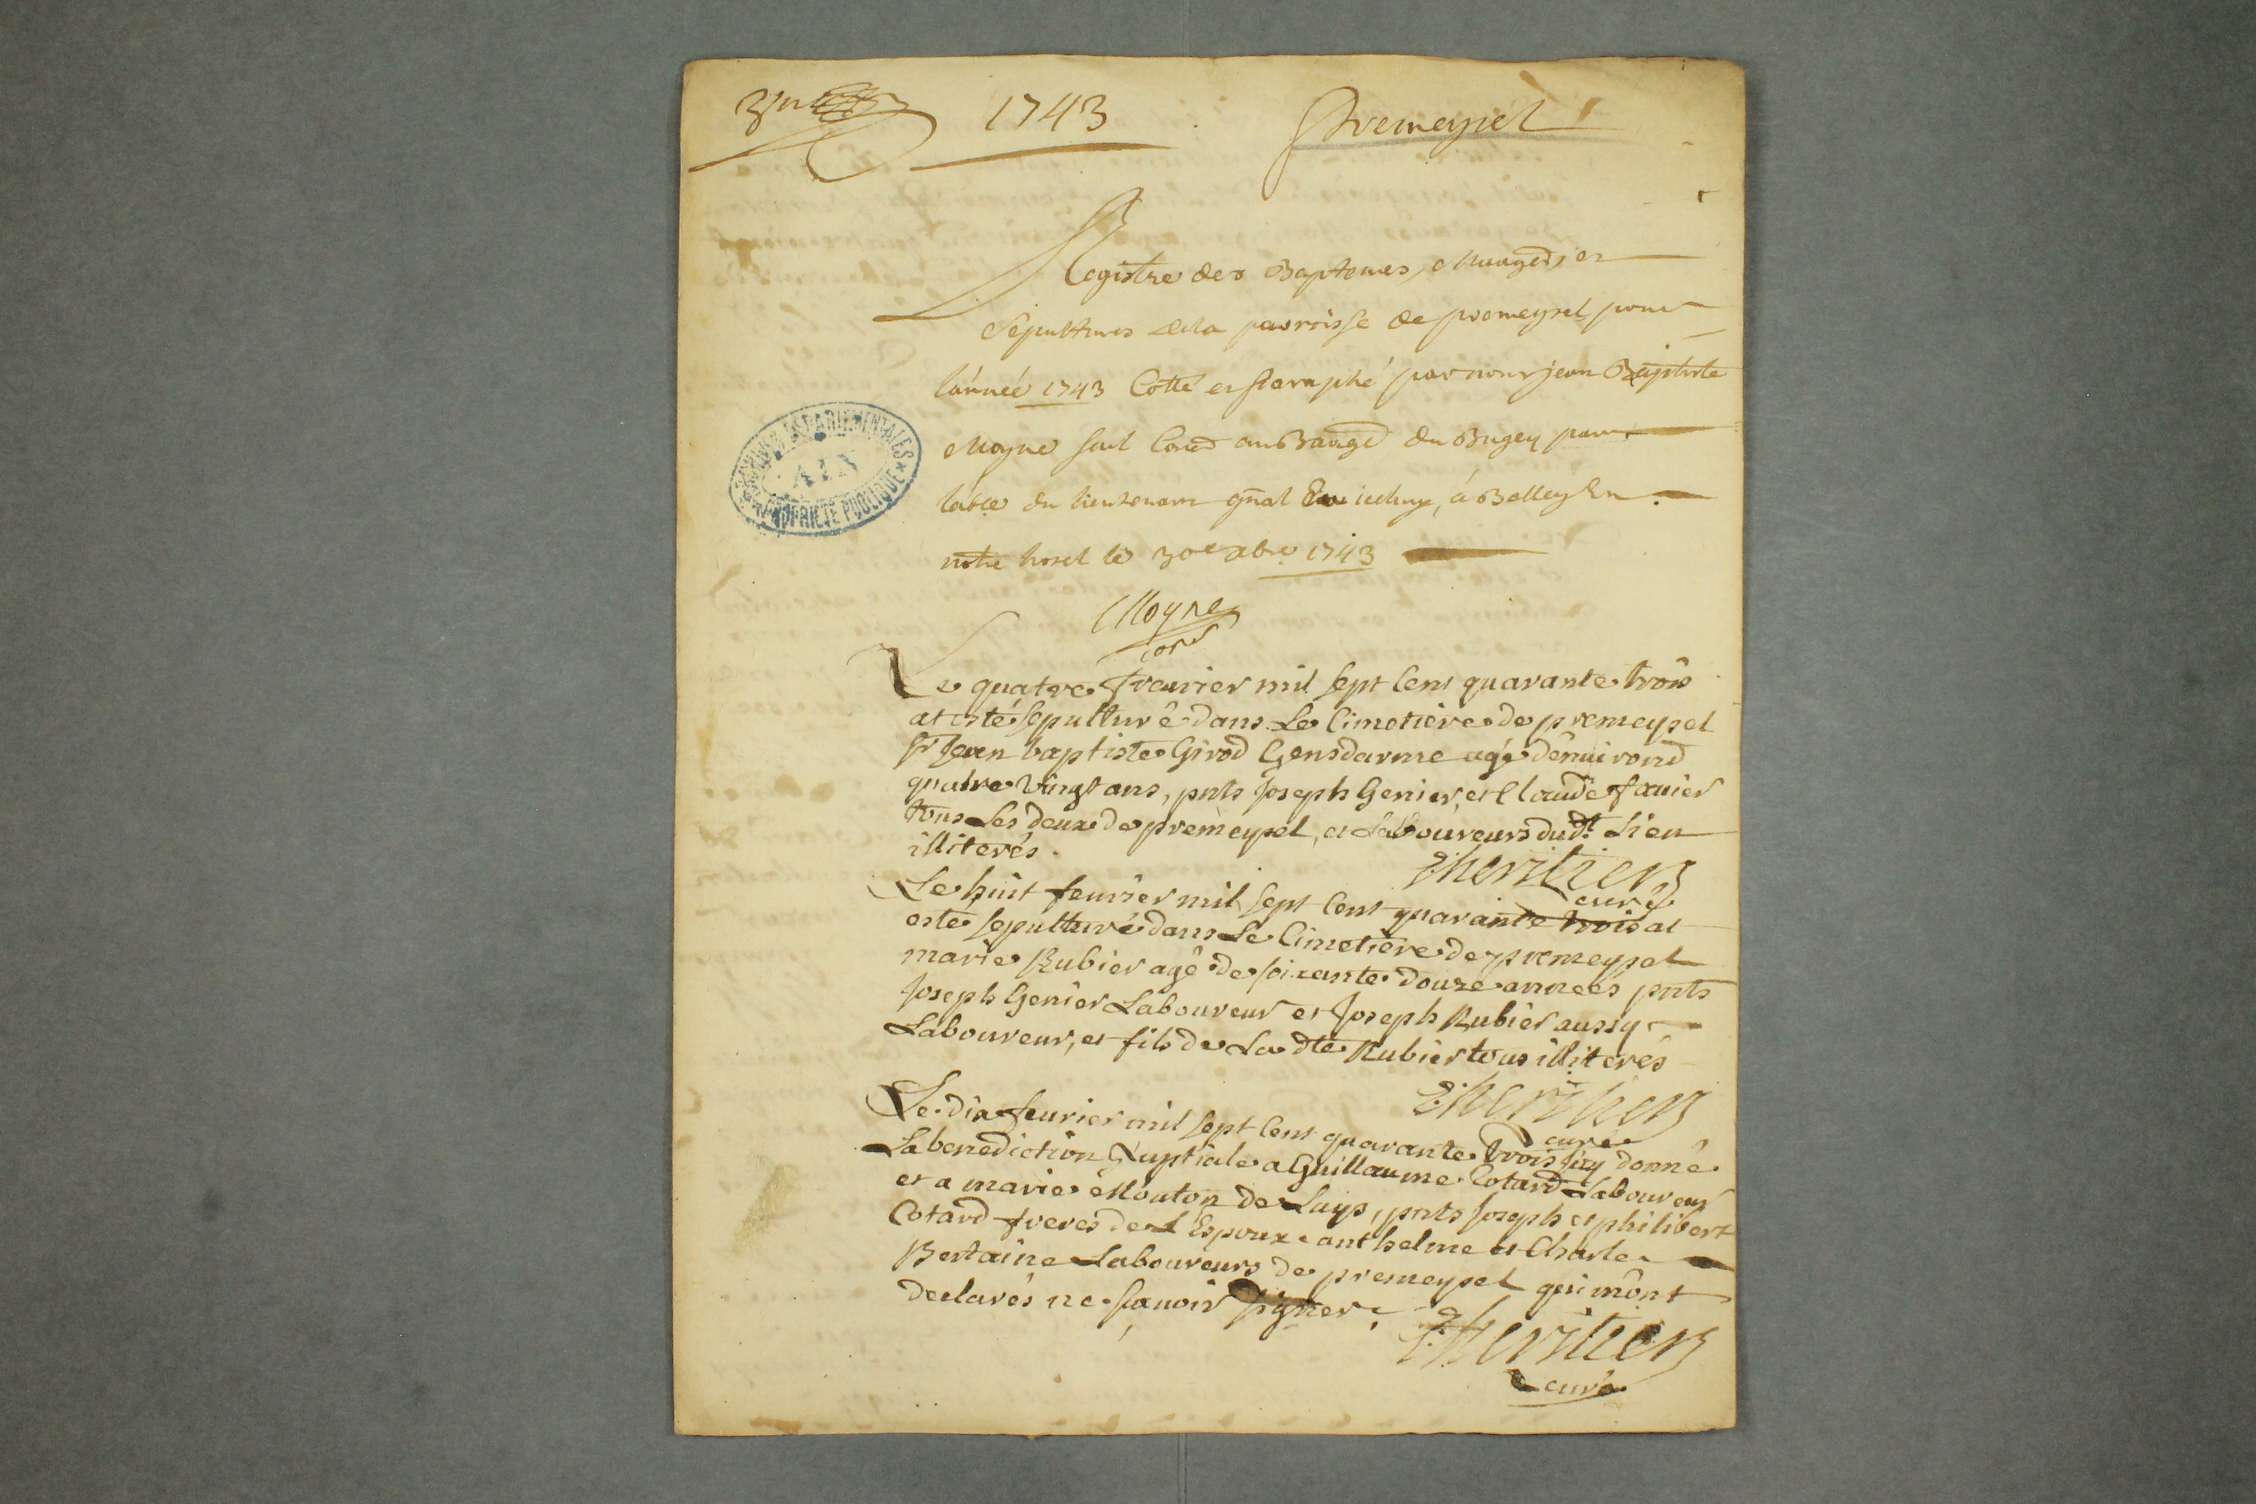 1743 Premeysel
Registre des Baptemes, Mariages, et
Sepultures dela parroisse de premeysel pour
l'année 1743 Cotté et paraphé par nous jean Baptiste
Moyne Seul Con.er au Bailliage du Bugey pour
labce du lieutenant gñal En iceluy, á Belley En
notre hotel le 30e xbre 1743
Moyne
Le quatre fevrier mil sept Cent quarante trois
at esté sepulturé dans Le Cimetiere de premeysel
Sr Jean baptiste Girod Gensdarme agé d'enuirond
quatre Vingt ans, pnts Joseph Genier, et Claude fauier
tous Les deux de premeysel, et Laboureurs dudt Lieu
illiterés.
Lheritier
curé
Le huit feurier mil sept Cent quarante trois at
esté sepulturé dans Le Cimetiere de premeysel
marie Rubier agé de soixante douze années pnts
Joseph Genier Laboureur et Joseph Rubier aussy
Laboureur, et fils de La dte Rubier tous illiterés
Lheritier
curé
Le dix feurier mil sept Cent quarante trois j'ay donné
La benediction Nuptiale a Guillaume Cotard Laboureur
et a marie Mouton de Luys, pnts Joseph et philibert
Cotard freres de L'Espoux anthelme et Charle
Bertaine Laboureurs de premeysel qui m'ont
declarés ne sçauoir signer.
Lheritier
curé
ARCHIVES DEPARTEMENTALES
AIN
PROPRIETE PUBLIQUE